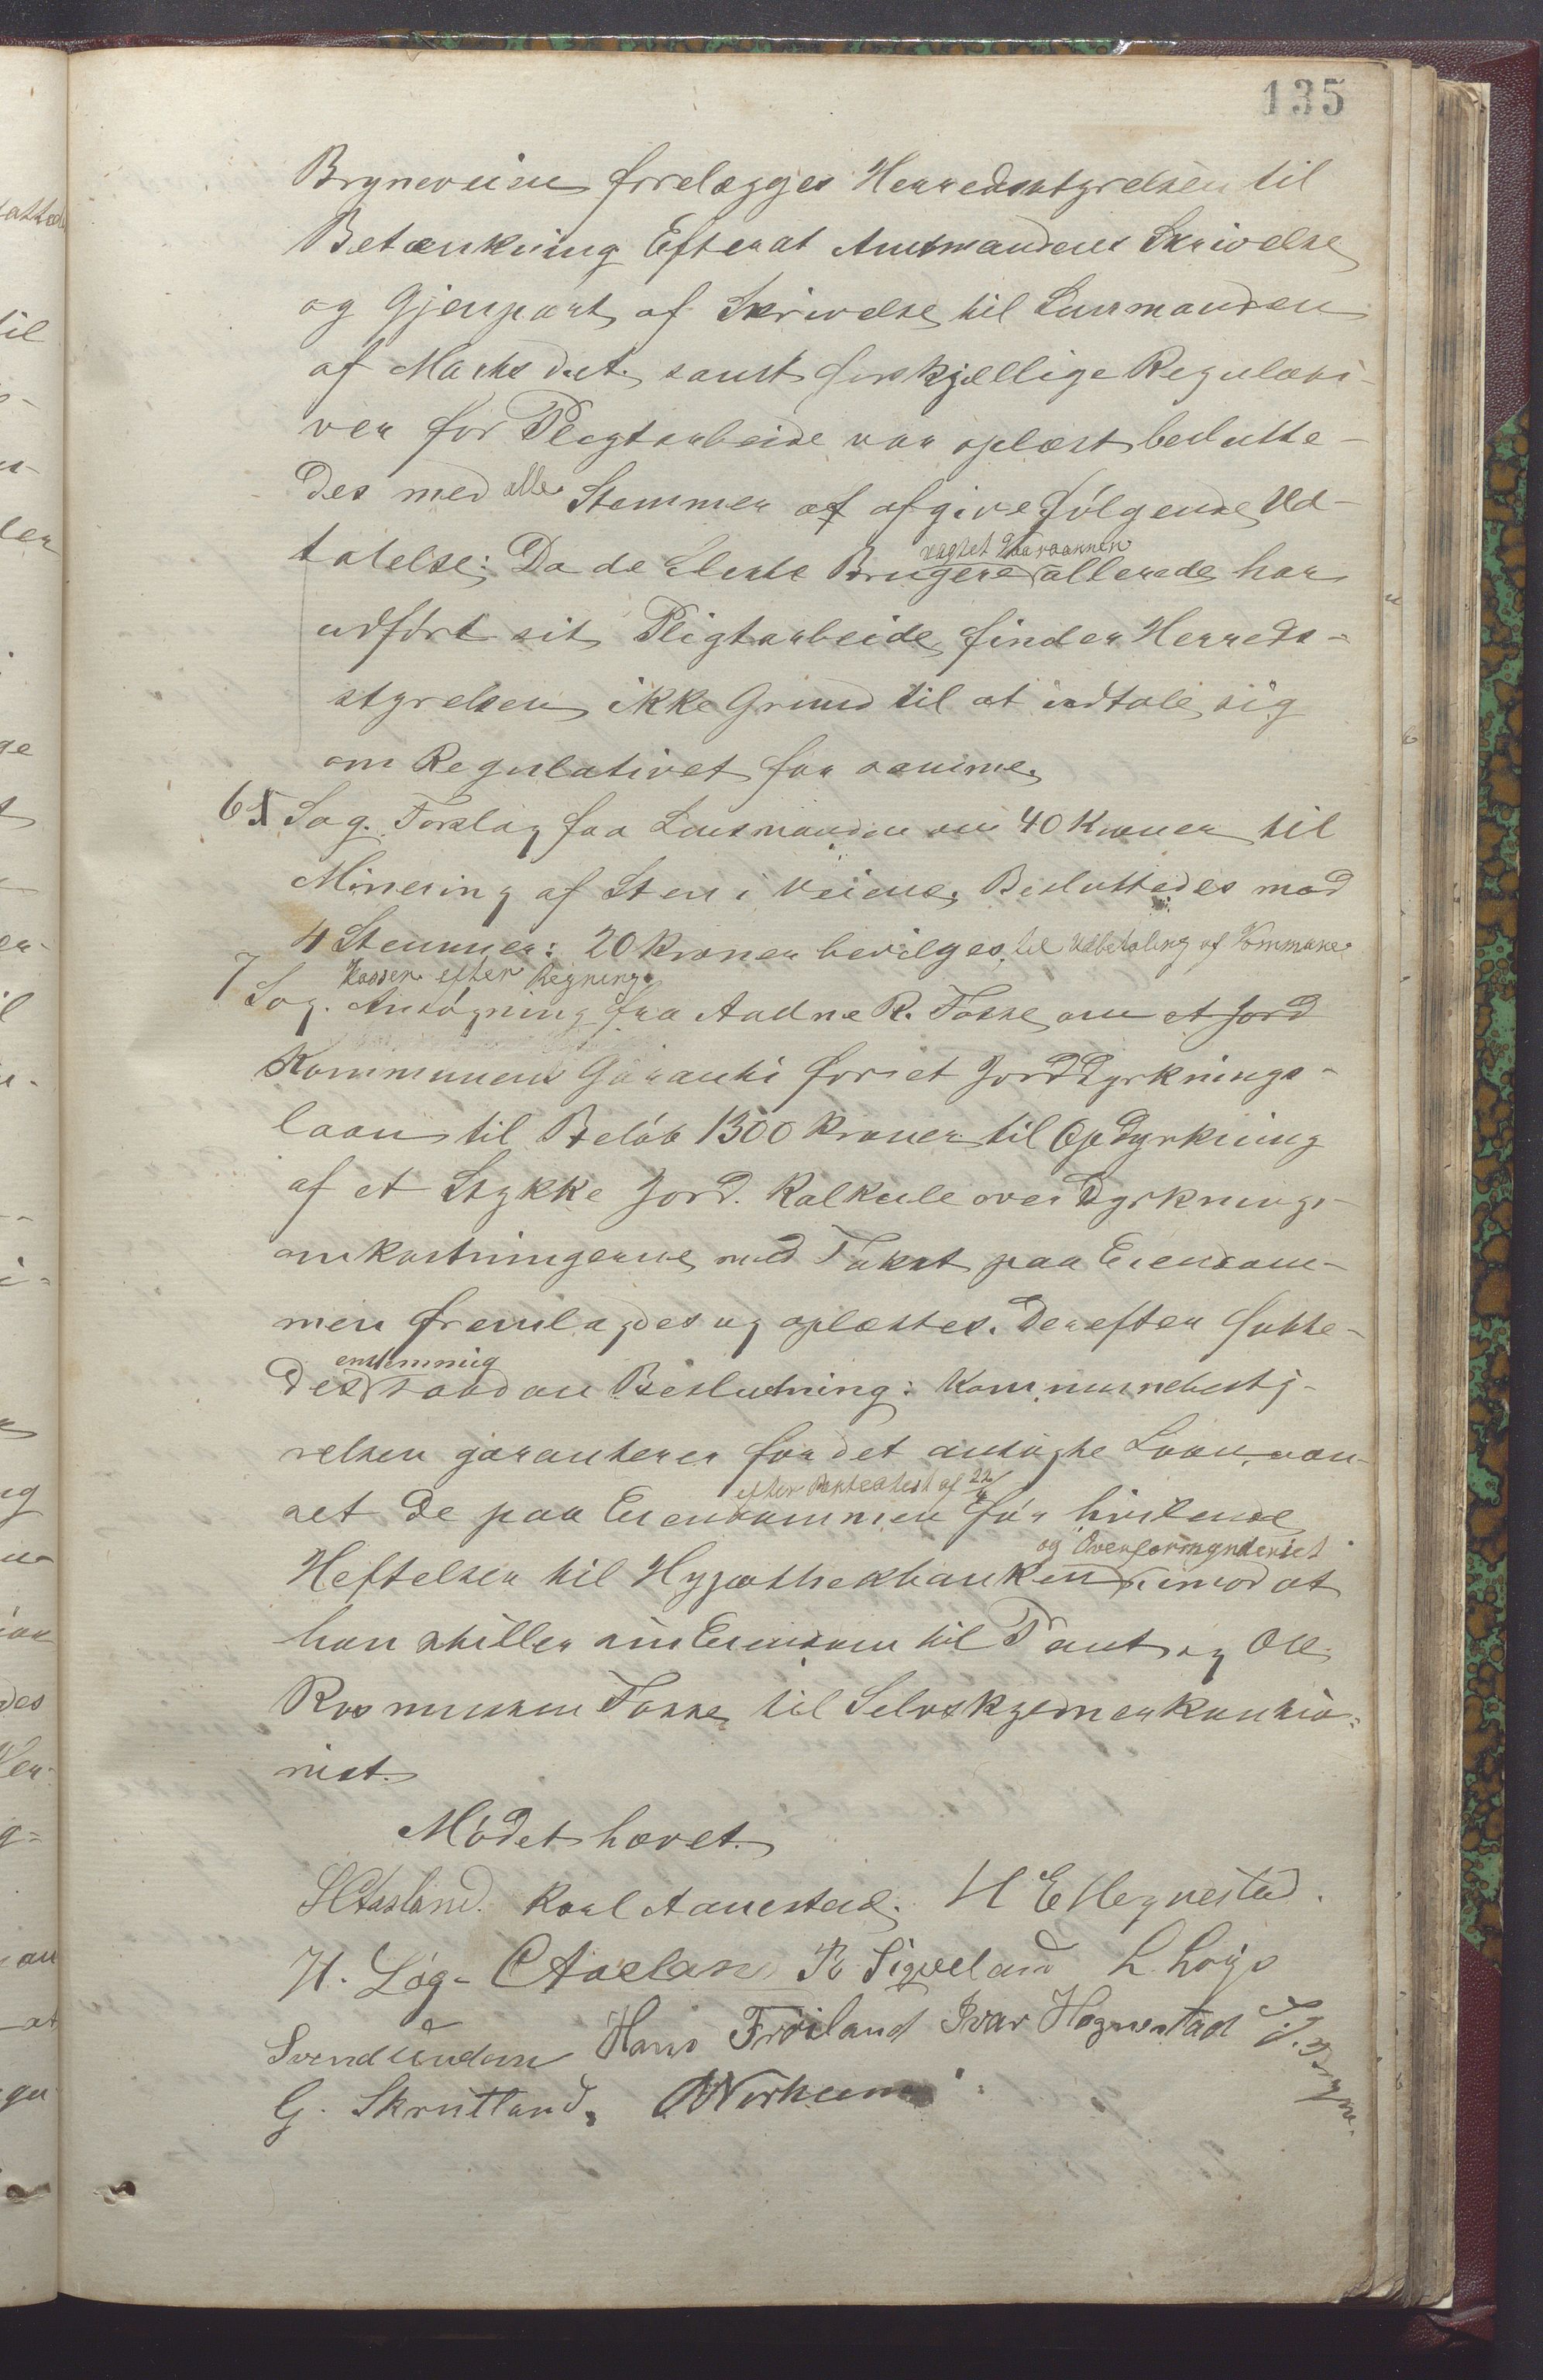 135
Bryneveien forelægges Herredsstyrelsen til
Betænkning Efterat Amtmandens Skrivelse
og Gjenpart af Skrivelse til Lensmanden
af Marts d.A. samt forskjællige Regulati-
ver for Pligtarbeide var oplæst beslutte-
des med alle Stemmer at afgive følgende Ud-
talelse: Da de fleste Brugere allerede har
udført sit Pligtarbeide finder Herreds-
styrelsen ikke Grund til at udtale sig
om Regulativet for samme.
6 Sag. Forslag fra Lensmanden om 40 Kroner til
Minering af Sten i Veiene. Besluttedes mod
4 Stemmer: 20 Kroner bevilges til Udbetaling af Kommune-
Kassen efter Regning.
7 Sag. Ansøgning fra Aadne R. Fosse om et Jord
Kommunens Garanti for et Jorddyrknings-
laan til Beløb 1300 Kroner til Opdyrkning
af et Stykke Jord. Kalkule over Dyrknings-
omkostningerne med Takst paa Eiendom-
men fremlagdes og oplæstes. Derefter fatte-
enstemmig
des saadan Beslutning: Kommunebesty-
relsen garanterer for det ansøgte Laan uan-
efter Panteattest af 22/4
set de paa Eiendommen før hvilende
og Overformynderiet
Heftelser til Hypothekbanken imod at
han stiller sin Eiendom til Pant og Ole
Rasmussen Fosse til Selvskyldnerkautio-
nist.
Mødet hævet.
Aasland. Karl Aanestad. H E Hegnestad.
H. Log- C Aaeland Sigveland L. Loge
Svend Undem Hans Frøiland Ivar Hognestad J. Bryne.
G. Skrutland. O Norheim